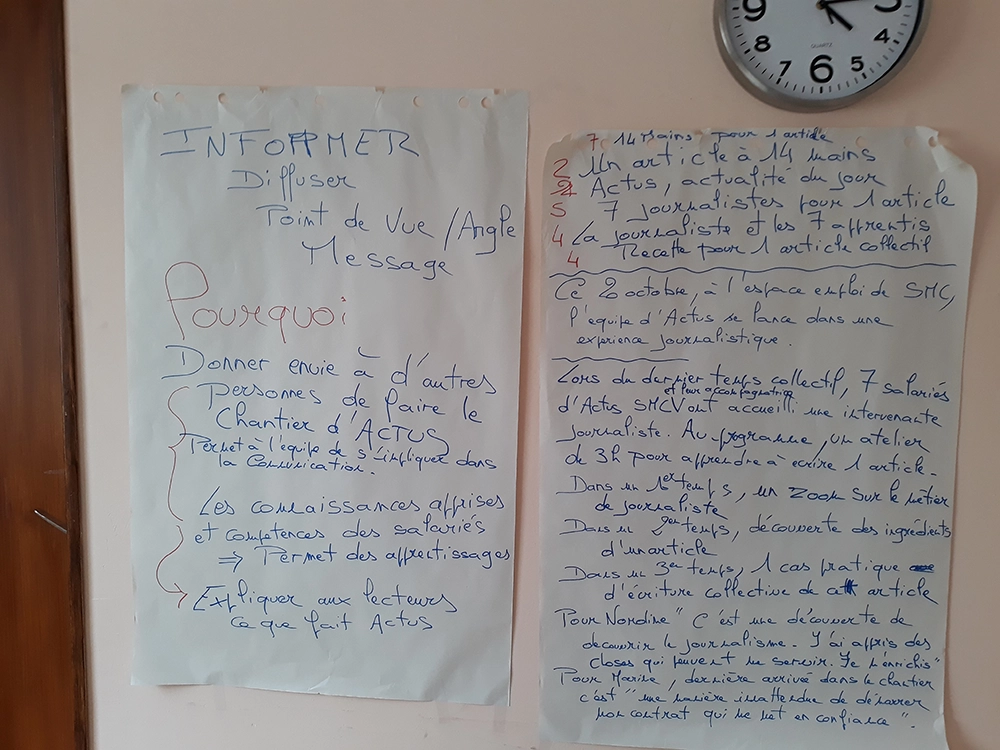 9
3
8
4
7
5
6
QUARTZ
INFORMER
Diffuser
Point de Vue / Angle
Message
Pourquoi
Donner envie à d'autres
personnes de faire le
Chantier d'ACTUS
Permet à l'équipe de s'impliquer dans
la Communication.
Les connaissances apprises
et compétences des salariés
⇒ Permet des apprentissages
Expliquer aux lecteurs
ce que fait Actus
7 14 mains pour 1 article
2 Un article à 14 mains
2 Actus, actualité du jour
5 7 journalistes pour 1 article
4 La journaliste et les 7 apprentis
4 Recette pour 1 article collectif
Ce 20 octobre, à l'espace emploi de SMC,
l'equipe d'Actus se lance dans une
experience journalistique.
Lors du dernier temps collectif, 7 salariés
et leur accompagnatrice
d'Actus SMCV ont accueilli une intervenante
journaliste. Au programme, un atelier
de 3h pour apprendre à ecrire 1 article.
Dans un 1er temps, un zoom sur le métier
de journaliste
Dans un temps, découverte des ingrédients
d'un article
Dans un temps, 1 cas pratique
d'écriture collective de article
Pour Nordine " C'est une découverte de
decouvrir le journalisme. J'ai appris des
choses qui peuvent me servir. Je m'enrichis"
Pour Marine, dernière arrivé dans le chantier
c'est " une manière inattendue de démarrer
mon contrat qui me met en confiance".